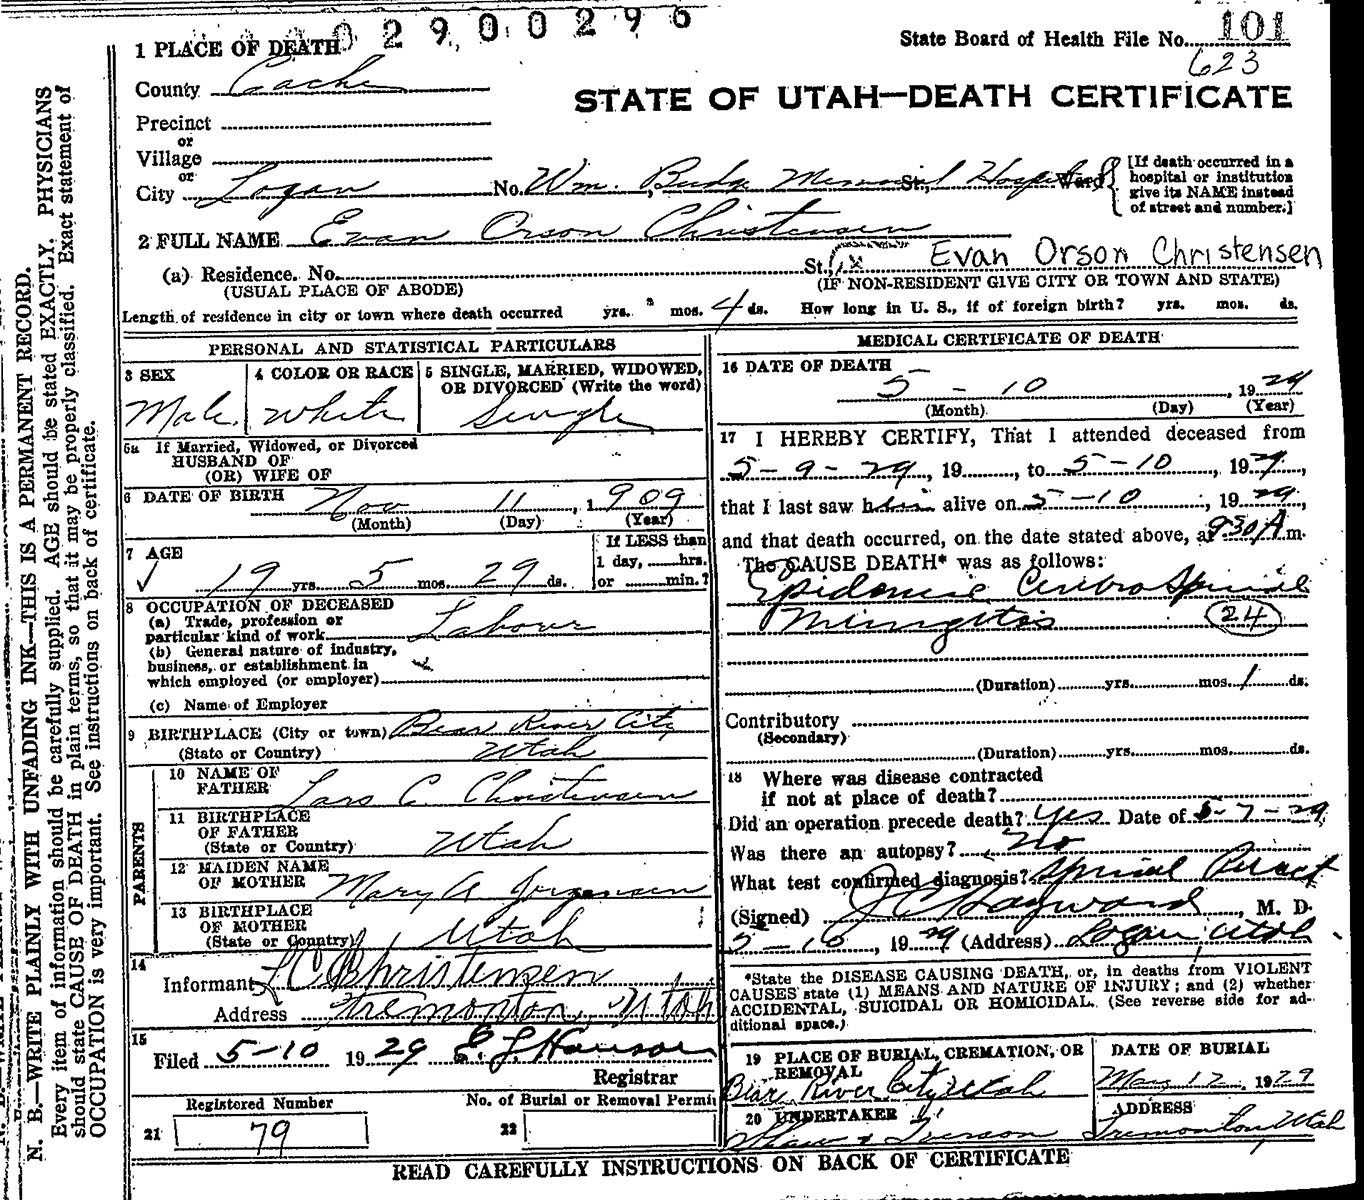 0 2 9 0 0 2 9 6
1 PLACE OF DEATH
State Board of Health File No. 101
623
County Cache
STATE OF UTAH—DEATH CERTIFICATE
Precinct
or
Village
or
City Logan No. Wm. Budge Memorial St., Hospital Ward
[If death occurred in a
hospital or institution
give its NAME instead
of street and number.]
2 FULL NAME Evan Orson Christensen
Evan Orson Christensen
(a) Residence. No. St.,
(USUAL PLACE OF ABODE) (IF NON-RESIDENT GIVE CITY OR TOWN AND STATE)
Length of residence in city or town where death occurred yrs. mos. 4 ds. How long in U. S., if of foreign birth? yrs. mos. ds.
PERSONAL AND STATISTICAL PARTICULARS
3 SEX
Male
4 COLOR OR RACE
White
5 SINGLE, MARRIED, WIDOWED,
OR DIVORCED (Write the word)
Single
5a If Married, Widowed, or Divorced
HUSBAND OF
(OR) WIFE OF
6 DATE OF BIRTH Nov 11, 1909
(Month) (Day) (Year)
7 AGE
19 yrs. 5 mos. 29 ds.
If LESS than
1 day, ......hrs.
or ......min.?
8 OCCUPATION OF DECEASED
(a) Trade, profession or
particular kind of work Laborer
(b) General nature of industry,
business, or establishment in
which employed (or employer)
(c) Name of Employer
9 BIRTHPLACE (City or town) Bear River City
(State or Country) Utah
PARENTS
10 NAME OF
FATHER Lars C Christensen
11 BIRTHPLACE
OF FATHER
(State or Country) Utah
12 MAIDEN NAME
OF MOTHER Mary A Jorgensen
13 BIRTHPLACE
OF MOTHER
(State or Country) Utah
14
Informant L C Christensen
Address Tremonton, Utah
15
Filed 5-10 1929
Registrar
Registered Number
21 79
No. of Burial or Removal Permit
22
MEDICAL CERTIFICATE OF DEATH
16 DATE OF DEATH
5 - 10, 1929
(Month) (Day) (Year)
17 I HEREBY CERTIFY, That I attended deceased from
5-9-29, 19......, to 5-10, 1929,
that I last saw him alive on 5-10, 1929,
and that death occurred, on the date stated above, at 9:30 A m.
The CAUSE DEATH* was as follows:
Epidemic Cerebro Spinal
Meningitis 24
(Duration) yrs. mos. 1 ds.
Contributory
(Secondary)
(Duration) yrs. mos. ds.
18 Where was disease contracted
if not at place of death?
Did an operation precede death? Yes Date of 5-7-29
Was there an autopsy? No
What test confirmed diagnosis? Spinal Punct
(Signed) J C Hayward, M. D.
5-10, 1929 (Address) Logan Utah
*State the DISEASE CAUSING DEATH, or, in deaths from VIOLENT
CAUSES state (1) MEANS AND NATURE OF INJURY; and (2) whether
ACCIDENTAL, SUICIDAL OR HOMICIDAL. (See reverse side for ad-
ditional space.)
19 PLACE OF BURIAL, CREMATION, OR
REMOVAL
Bear River City Utah
DATE OF BURIAL
May 12, 1929
20 UNDERTAKER
Shaw & Iverson
ADDRESS
Tremonton, Utah
READ CAREFULLY INSTRUCTIONS ON BACK OF CERTIFICATE
N. B.—WRITE PLAINLY WITH UNFADING INK—THIS IS A PERMANENT RECORD.
Every item of information should be carefully supplied. AGE should be stated EXACTLY. PHYSICIANS
should state CAUSE OF DEATH in plain terms, so that it may be properly classified. Exact statement of
OCCUPATION is very important. See instructions on back of certificate.